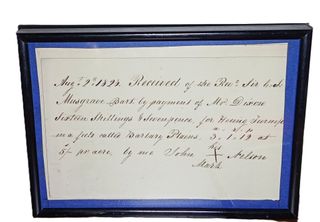 Augt 9th 1828. Received of the Revd Sir C. J.
Musgrave Bart by payment of Mr Dixon
Sixteen Shillings & Sevenpence for Hoeing Turnips
in a field called Barbary Plains 3,,1,,12 at
5/- pr acre by me John X Nelson
his
Mark